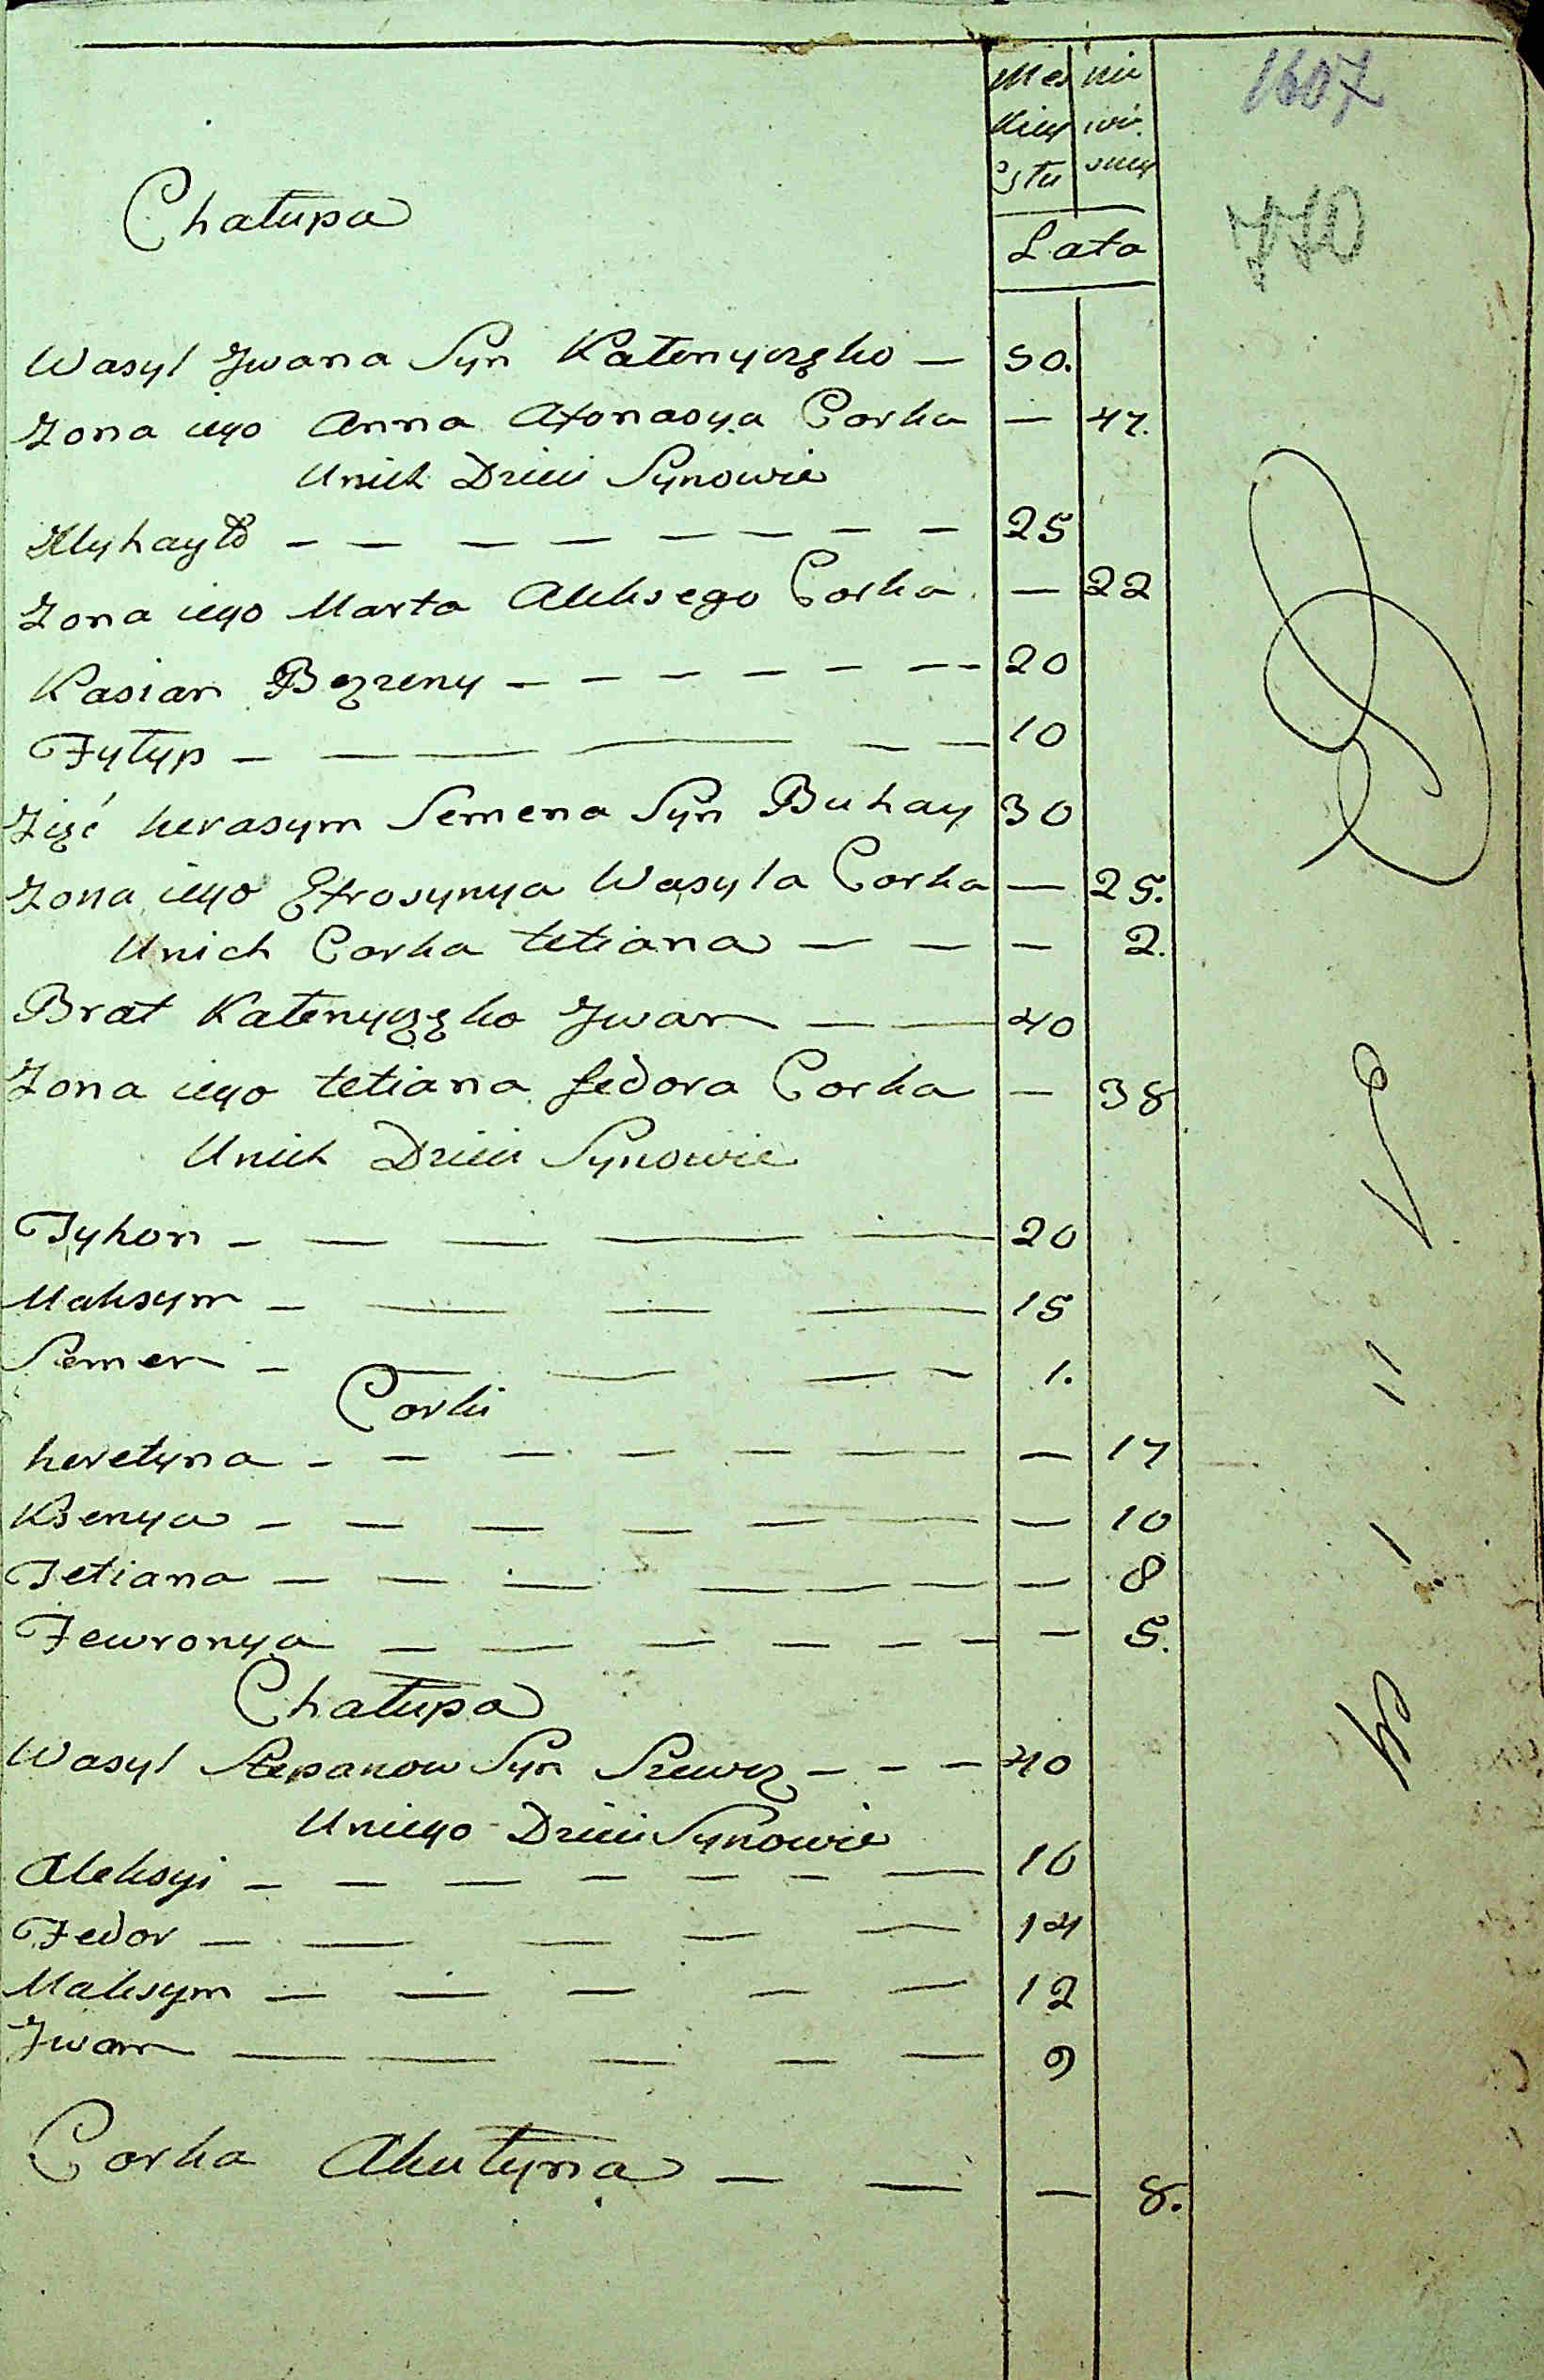 Mes nie
kiey wie.
Stu sney
1607
770
Chałupa
Lata
Wasyl Jwana Syn Kałenyczęko — 50.
Zona iego Anna Afonasya Corka — 47.
Unich Dzieci Synowie
Myhayło — — — — — — — 25
Zona iego Marta Aleksego Corka — 22
Kasian Bęzzeny — — — — — — 20
Fyłyp — — — — — 10
Zięć herasym Semena Syn Buhay 30
Zona iego Efrosynya Wasyla Corka — 25.
Unich Corka tetiana — — — 2.
Brat Kałenyczęko Jwan — — 40
Zona iego tetiana fedora Corka — 38
Unich Dzieci Synowie
Tyhon — — — — — 20
Maksym — — — — 15
Semen — — — — — 1.
Corki
heretyna — — — — — — — 17
Ksenya — — — — — — — 10
Tetiana — — — — — — — 8
Fewronya — — — — — — — 5.
Chałupa
Wasyl Stepanow Syn Szewcz — — — 40
Uniego Dzieci Synowie
Aleksyi — — — — — — 16
Fedor — — — — — 14
Maksym — — — — — 12
Jwan — — — — — 9
Corka Akułyna — — — 8.